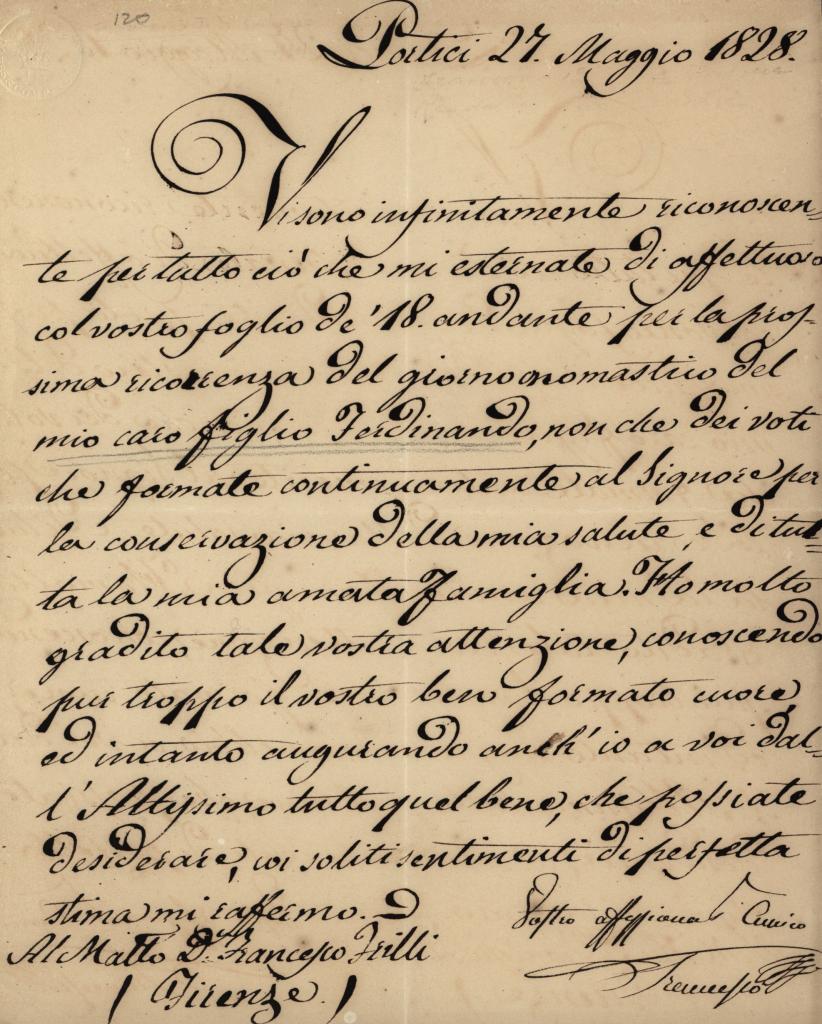 120
Portici 27. Maggio 1828.
Vi sono infinitamente riconoscen=
te per tutto ciò che mi esternate di affettuoso
col vostro foglio de' 18. andante per la pros=
sima ricorrenza del giorno onomastico del
mio caro figlio Ferdinando, non che dei voti
che formate continuamente al Signore per
la conservazione della mia salute, e di tut=
ta la mia amata Famiglia. Ho molto
gradito tale vostra attenzione, conoscendo
pur troppo il vostro ben formato cuore,
ed intanto augurando anch' io a voi dal=
l' Altissimo tutto quel bene, che possiate
desiderare, coi soliti sentimenti di perfetta
stima mi raffermo.
Vostro Amico
Al D. Francesco Frilli
Francesco
( Firenze )